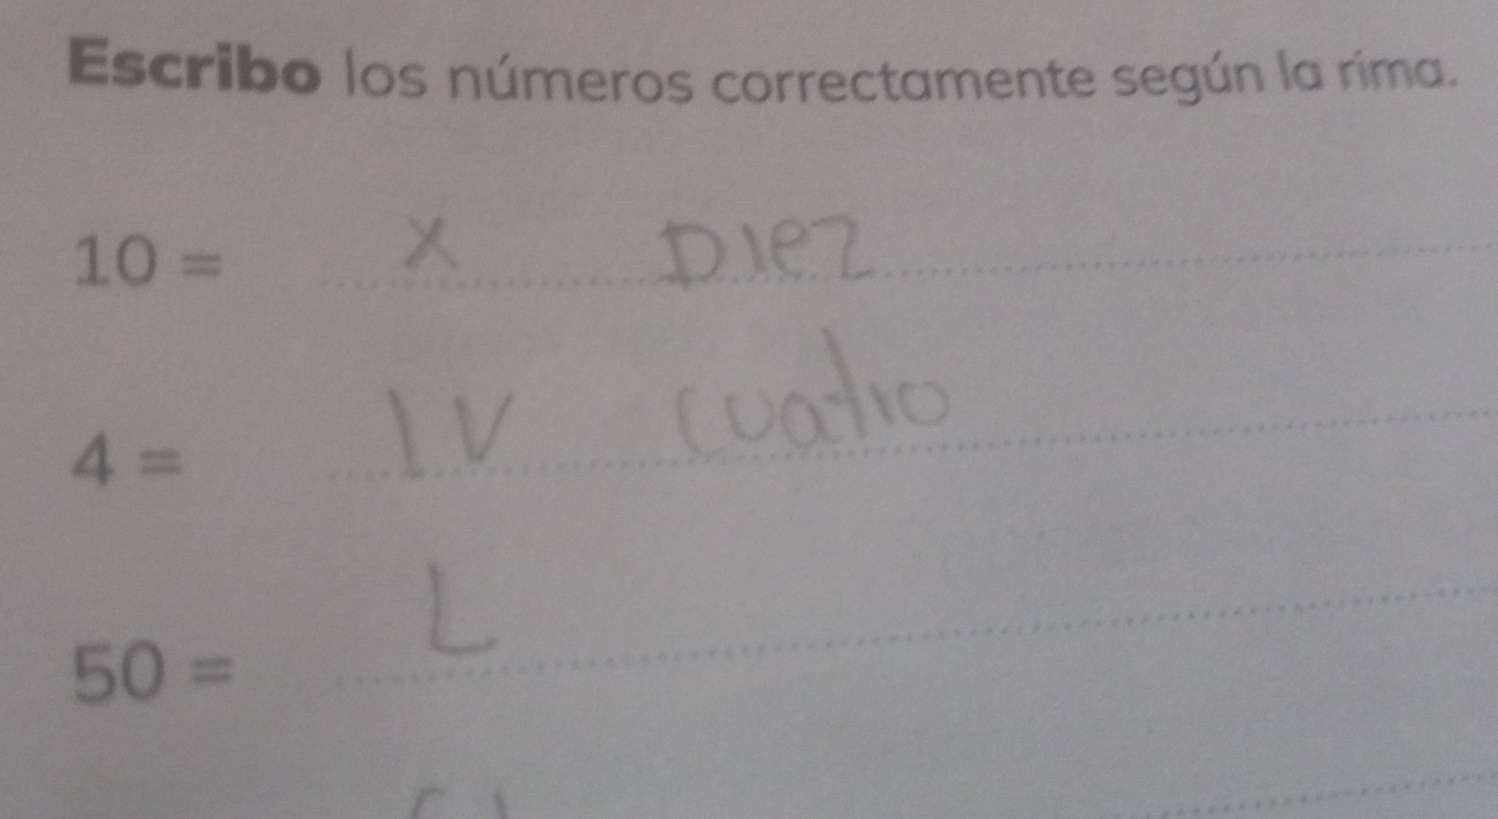 Escribo los números correctamente según la rima.
10 = X Diez
4 = IV cuatro
50 = L